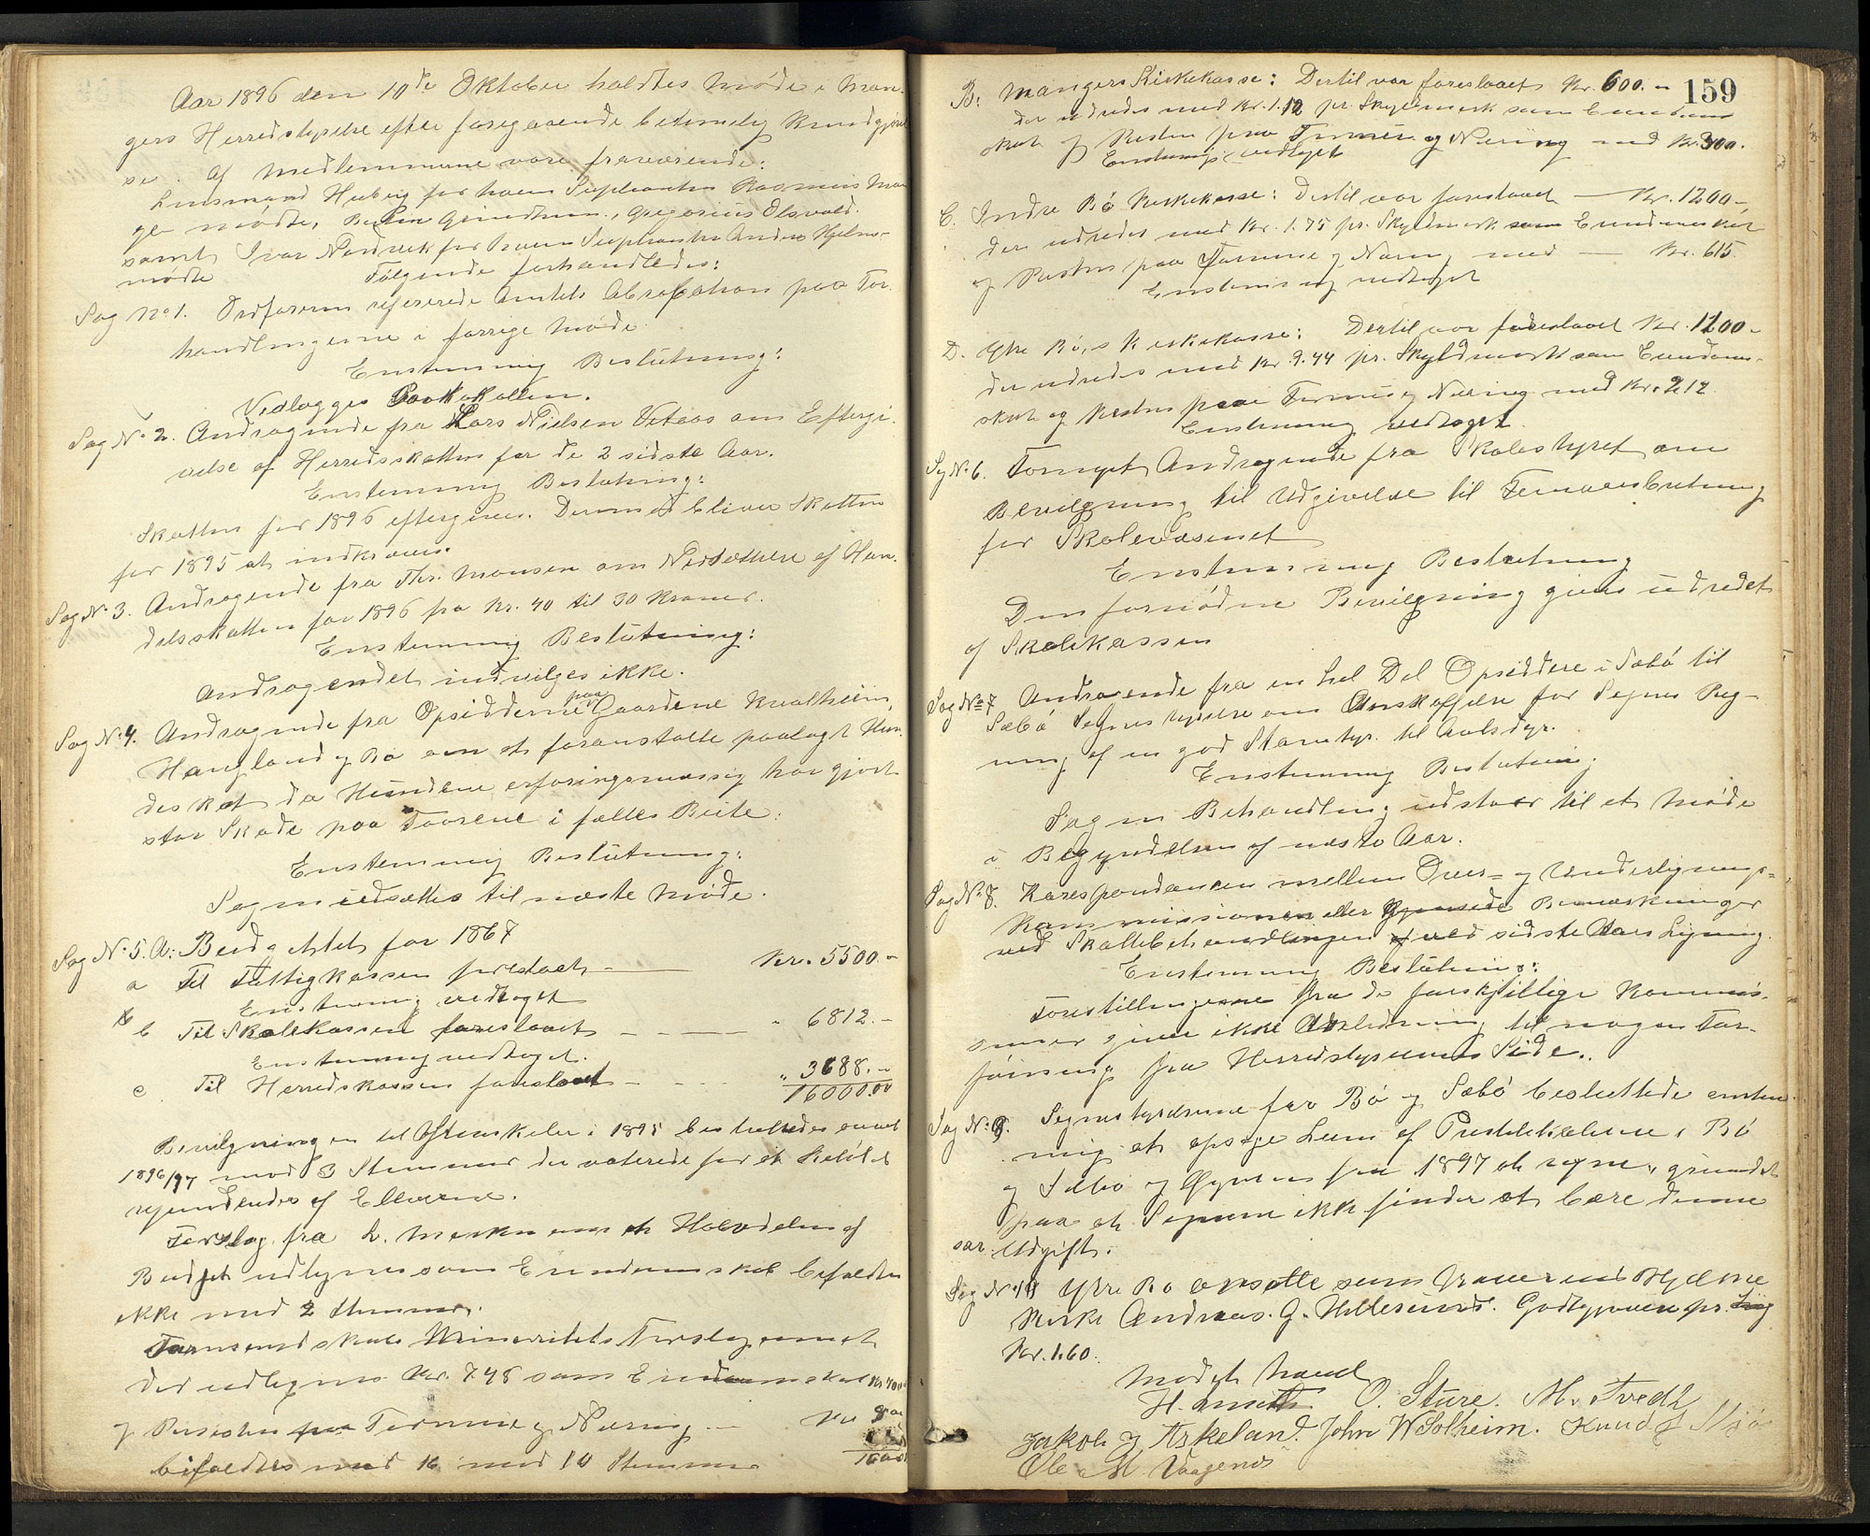 Aar 1896 den 10de Oktober holdtes Møde i Man-
gers Herredstyrelse efter foregaaende betimelig Kundgjørel
se. Af Medlemmerne vare fraværende:
Lensmand Huberg for hvem Suplianten Rasmus Man
ge mødte, Gregorius Olsvold.
samt Ivar Nordvik for hvem Suplianten Anders Hjelm-
mødte
Følgende forhandledes:
Sag No 1. Ordføreren refererede Amtets Abrobation paa For
handlingerne i forrige Møde.
Enstemmig Beslutning:
Vedlægges Protokollen.
Sag No 2. Andragende fra Lars Nielsen Vetaas om Eftergi-
velse af Herredsskatten for de 2 sidste Aar.
Enstemmig Beslutning:
Skatten for 1896 eftergives. Derimod bliver Skatten
for 1895 at indkræve.
Sag No 3. Andragende fra Thr. Monsen om Nedsættelse af Han-
delsskatten for 1896 fra Kr. 40 til 30 Kroner.
Enstemmig Beslutning:
Andragendet indvilges ikke.
Sag No 4. Andragende fra Opsidderne paa Gaardene Kvalheim,
Haugland og Bø om at foranstalte paalagt Hun-
deskat da Hundene erfaringsmæssig har gjort
stor Skade paa Faarene i fælles Beite.
Enstemmig Beslutning:
Sagen udsættes til næste Møde.
Sag No 5. A: Budgettet for 1867
a Til Fattigkassen foreslaaet Kr. 5500.-
Enstemmig vedtaget
b Til Skolekassen foreslaaet " 6812.-
Enstemmig vedtaget.
c Til Herredskassen foreslaaet " 3688.-
16000.00
Bevilgningen til i 1895 besluttedes
1896/97 mod 3 Stemmer der voterede for et Beløb
af Elverne.
Forslag fra L. om at Halvdelen af
Budget udlignes som Eiendomsskat bifaldtes
ikke med 2 Stemmer.
Formandskabs Minoritets Forslag om at
der udlignes Kr. 7.48 som Eiendomsskat
og Resten paa Formue og Næring
bifaldtes med 10 Stemmer
159
B: Mangers Kirkekasse: Dertil var foreslaaet Kr. 600.-
der udredes med Kr. 1.12 pr. Skyldmark som Eiendoms
skat og Resten paa Formue og Næring med Kr. 300.
Enstemmig vedtaget
C. Indre Bø Kirkekasse: Dertil var foreslaaet Kr. 1200-
der udredes med Kr. 1.75 pr. Skyldmark som Eiendomsskat
og Resten paa Formue og Næring med Kr. 615
Enstemmig vedtaget
D. Ytre Bø,s Kirkekasse: Dertil var foreslaaet Kr. 1200-
der udredes med Kr. 9.44 pr. Skyldmark som Eiendoms-
skat og Resten paa Formue og Næring med Kr. 212
Enstemmig vedtaget
Sag No 6. Fornyet Andragende fra Skolestyret om
Bevilgning til Udgivelse til
for Skolevæsenet
Enstemmig Beslutning
Den fornødne Bevilgning gives udredet
af Skolekassen
Sag No 7 Andragende fra en hel Del Opsiddere i Sæbø til
Sæbø Sognestyrelse om Anskaffelse for Sognes Reg-
ning af en god Stamtyr til Avlsdyr.
Enstemmig Beslutning
Sagens Behandling udstaar til et Møde
i Begyndelsen af næste Aar.
Sag No 8. Korespondancen mellem Over- og Underlignings-
kommissionen eller Bemærkninger
ved Skattebehandlingen ved sidste Aars Ligning.
Enstemmig Beslutning:
Forestillingerne fra de forskjellige Kommis-
sioner giver ikke Anledning til nogen For-
føining fra Herredstyrelsens Side.
Sag No 9. Sognestyrelserne for Bø og Sæbø besluttede enstem
mig at opsige Leien af Prestelokalerne i Bø
og Sæbø og fra 1897 at regne, grundet
paa at Sognene ikke finder at bære denne
Udgift.
Sag No 10 Ytre Bø ansatte som Graver ved Hjelme
Kirke Andreas G. Hellesund. Godtgjørelse pr.
Kr. 1.60.
Mødet hævet
O. Sture. M. Tvedt
Jakob J. Askeland. John W Solheim. Knud J
Ole M Vaagenes